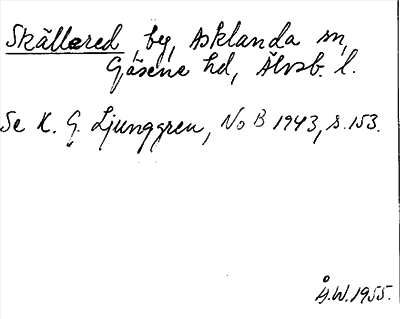 Skällared, by, Asklanda sn,
Gäsene hd, Älvsb. l.
Se K. G. Ljunggren, NoB 1943, s. 153.
Å.W. 1955.